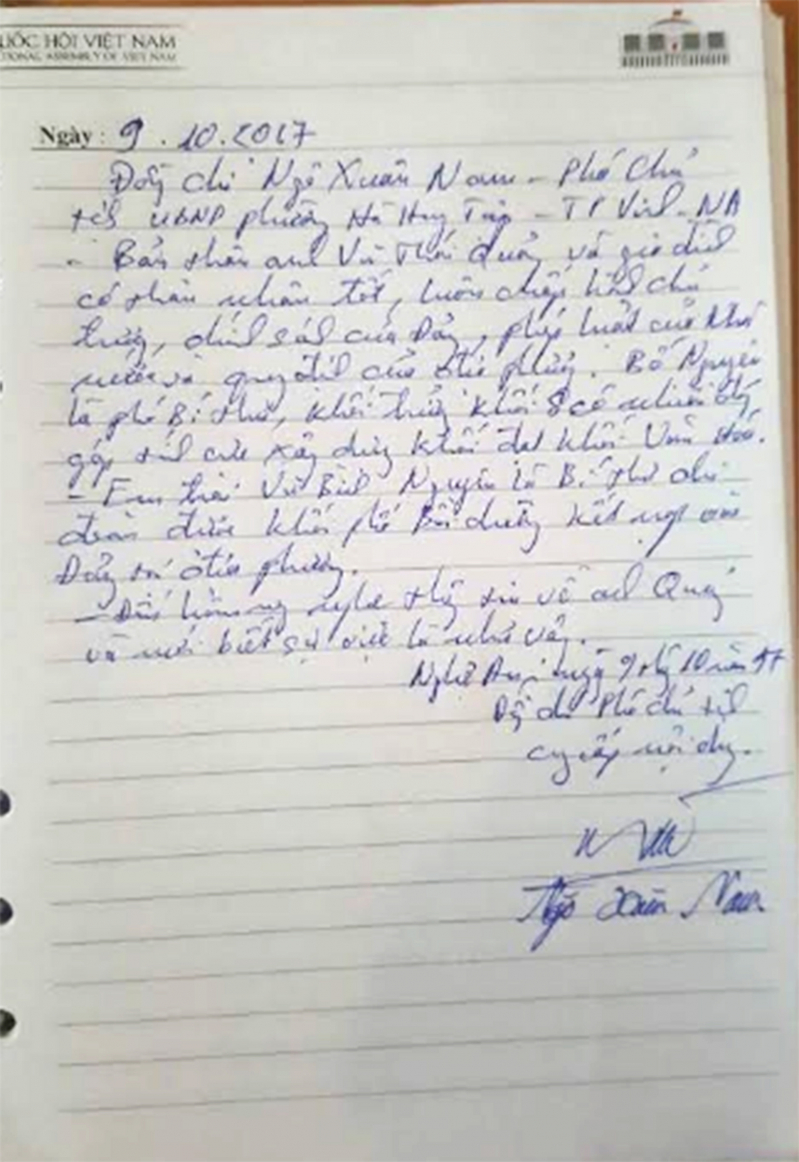 UỐC HỘI VIỆT NAM
TIONAL ASSEMBLY OF VIET NAM
Ngày : 9.10.2017
Đồng chí Ngô Xuân Nam - Phó Chủ
tịch UBND phường Hà Huy Tập - TP Vinh - NA
- Bản thân anh Vũ Quảng và gia đình
có thân nhân tốt, luôn chấp hành chủ
trương, chính sách của Đảng, pháp luật của Nhà
nước và quy định của địa phương. Bố Nguyên
là phó Bí thư, khối trưởng khối 8 có nhiều đóng
góp tích cực xây dựng khối đạt khối Văn Hoá.
- Em trai Vũ Bình Nguyên là Bí thư chi
đoàn được khối phố Bồi dưỡng kết nạp vào
Đảng ở địa phương.
- nghe thông tin về anh Quảng
và mới biết sự việc là như vậy.
Nghệ An, ngày 9 tháng 10 năm 17
Đ/c Phó chủ tịch
cung cấp nội dung.
Ngô Xuân Nam